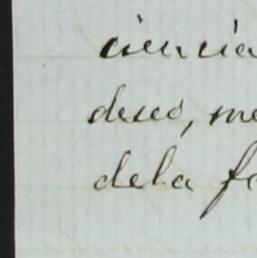 ciencia
deseo, me
dela fa